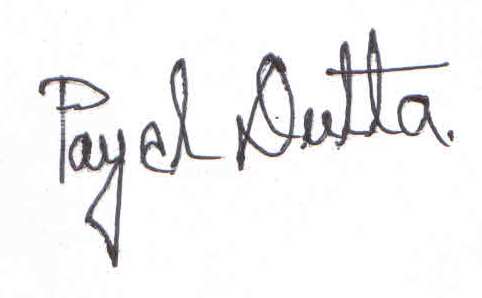 Payel Dutta.